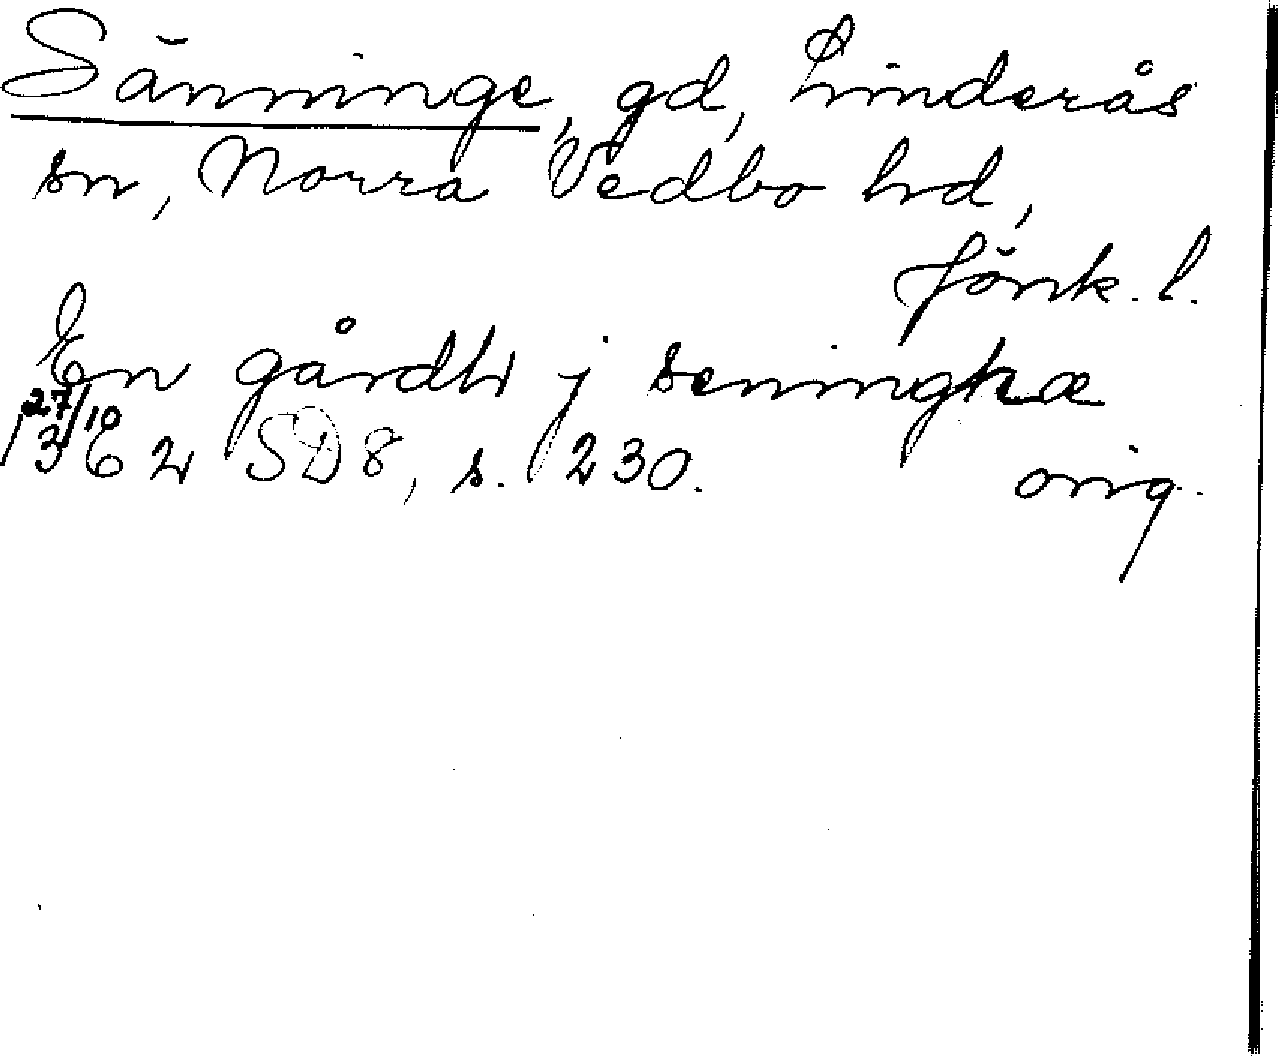 Sänninge, gd, Linderås
sn, Norra Vedbo hd,
Jönk. l.
En gårdh j seninghæ
27/10
1362 SD8, s. 230. orig.